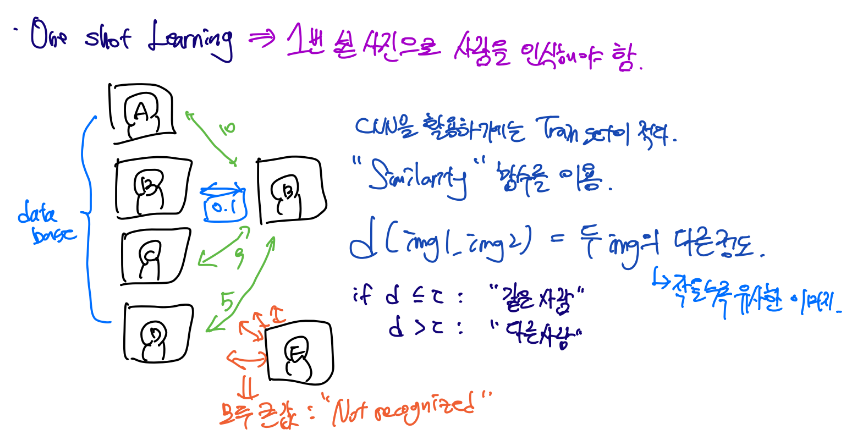 · One shot Learning ⇒ 1번 본 사진으로 사람을 인식해야 함.
A
10
CNN을 활용하기에는 Train set이 적다.
B
0.1
B
"Similarity" 함수를 이용.
data
base
C
9
d(img1, img2) = 두 img의 다른정도.
↳ 작을수록 유사한 이미지.
5
if d ≤ τ : "같은 사람"
D
d > τ : "다른사람"
E
모두 큰값 : "Not recognized"